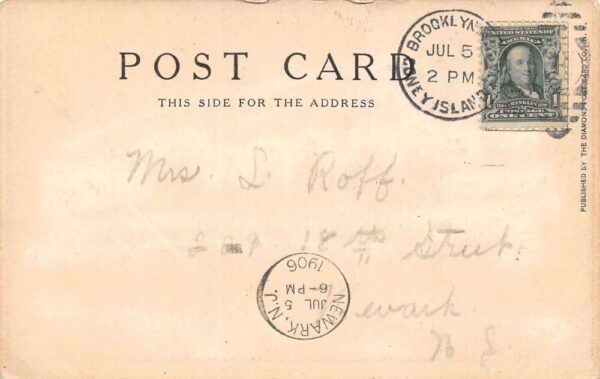 POST CARD
THIS SIDE FOR THE ADDRESS
BROOKLYN
JUL 5
2 PM
CONEY ISLAND
SERIES 1902
UNITED STATES OF
AMERICA
FRANKLIN
POSTAGE
1 ONE CENT 1
PUBLISHED BY THE DIAMOND POST CARD CO. N.Y.
Mrs. L Roff.
229 18th Street.
NEWARK, N.J.
JUL 5
6-PM
1906
Newark
N J